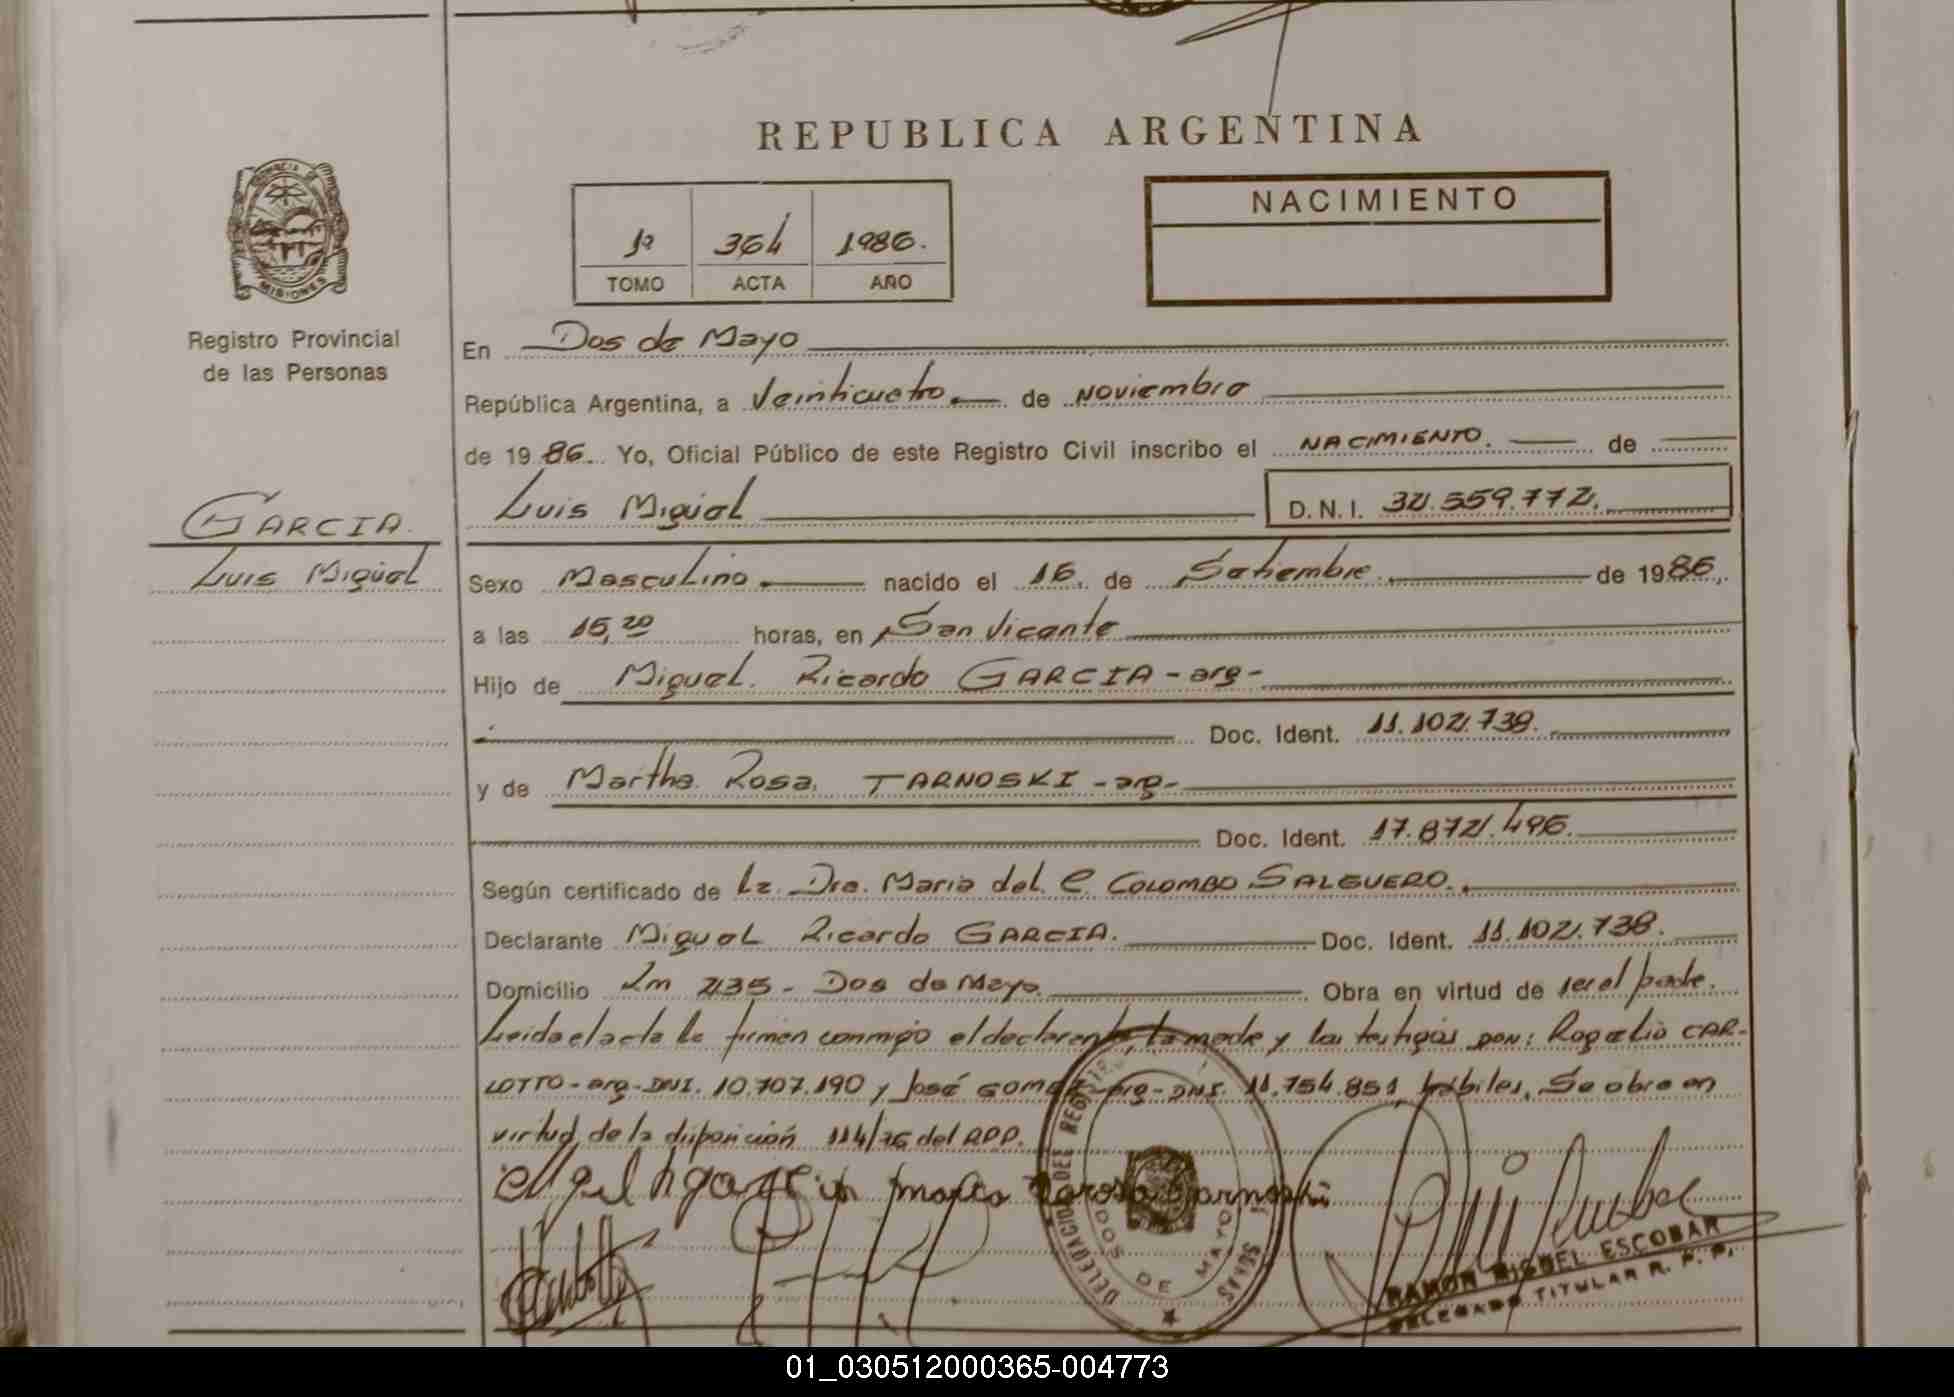 REPUBLICA ARGENTINA
PROVINCIA DE
MISIONES
Registro Provincial
de las Personas
1º 364 1986.
TOMO ACTA AÑO
NACIMIENTO
En Dos de Mayo
República Argentina, a Veinticuatro de Noviembre
de 1986. Yo, Oficial Público de este Registro Civil inscribo el NACIMIENTO. de
Luis Miguel D.N.I. 32.559.772.
GARCIA.
Luis Miguel
Sexo Masculino nacido el 16 de Setiembre de 1986,
a las 15,20 horas, en San Vicente
Hijo de Miguel Ricardo GARCIA - arg -
Doc. Ident. 11.102.738.
y de Martha Rosa TARNOSKI - arg -
Doc. Ident. 17.872.496.
Según certificado de La Dra. Maria del C. COLOMBO SALGUERO.
Declarante Miguel Ricardo GARCIA. Doc. Ident. 11.102.738.
Domicilio Km 235 - Dos de Mayo. Obra en virtud de ser el padre.
Leida el acta la firman conmigo el declarante, la madre y los testigos don: Rogelio CAR-
LOTTO - arg - DNI. 10.707.190 y José GOMEZ - arg - DNI. 11.754.851, hábiles, Se obra en
virtud de la disposición 114/76 del RPP.
DOS DE MAYO
RAMON MIGUEL ESCOBAR
DELEGADO TITULAR R. P. P.
01_030512000365-004773